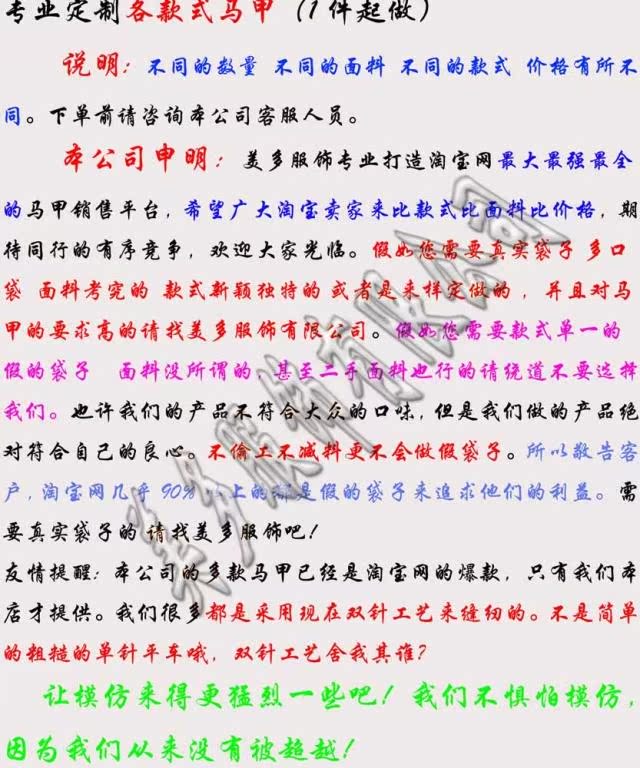 专业定制各款式马甲（1件起做）
说明：不同的数量 不同的面料 不同的款式 价格有所不
同。下单前请咨询本公司客服人员。
本公司申明：美多服饰专业打造淘宝网最大最强最全
的马甲销售平台，希望广大淘宝卖家来比款式比面料比价格，期
待同行的有序竞争，欢迎大家光临。假如您需要真实袋子 多口
袋 面料考究的 款式新颖独特的 或者是来样定做的 ，并且对马
甲的要求高的请找美多服饰有限公司。假如您需要款式单一的
假的袋子 面料没所谓的，甚至二手面料也行的请绕道不要选择
我们。也许我们的产品不符合大众的口味，但是我们做的产品绝
对符合自己的良心。不偷工不减料更不会做假袋子。所以敬告客
户，淘宝网几乎90%以上的都是假的袋子来追求他们的利益。需
要真实袋子的 请找美多服饰吧！
友情提醒：本公司的多款马甲已经是淘宝网的爆款，只有我们本
店才提供。我们很多都是采用现在双针工艺来缝纫的。不是简单
的粗糙的单针平车哦，双针工艺舍我其谁？
让模仿来得更猛烈一些吧！我们不惧怕模仿，
因为我们从来没有被超越！
美多服饰有限公司